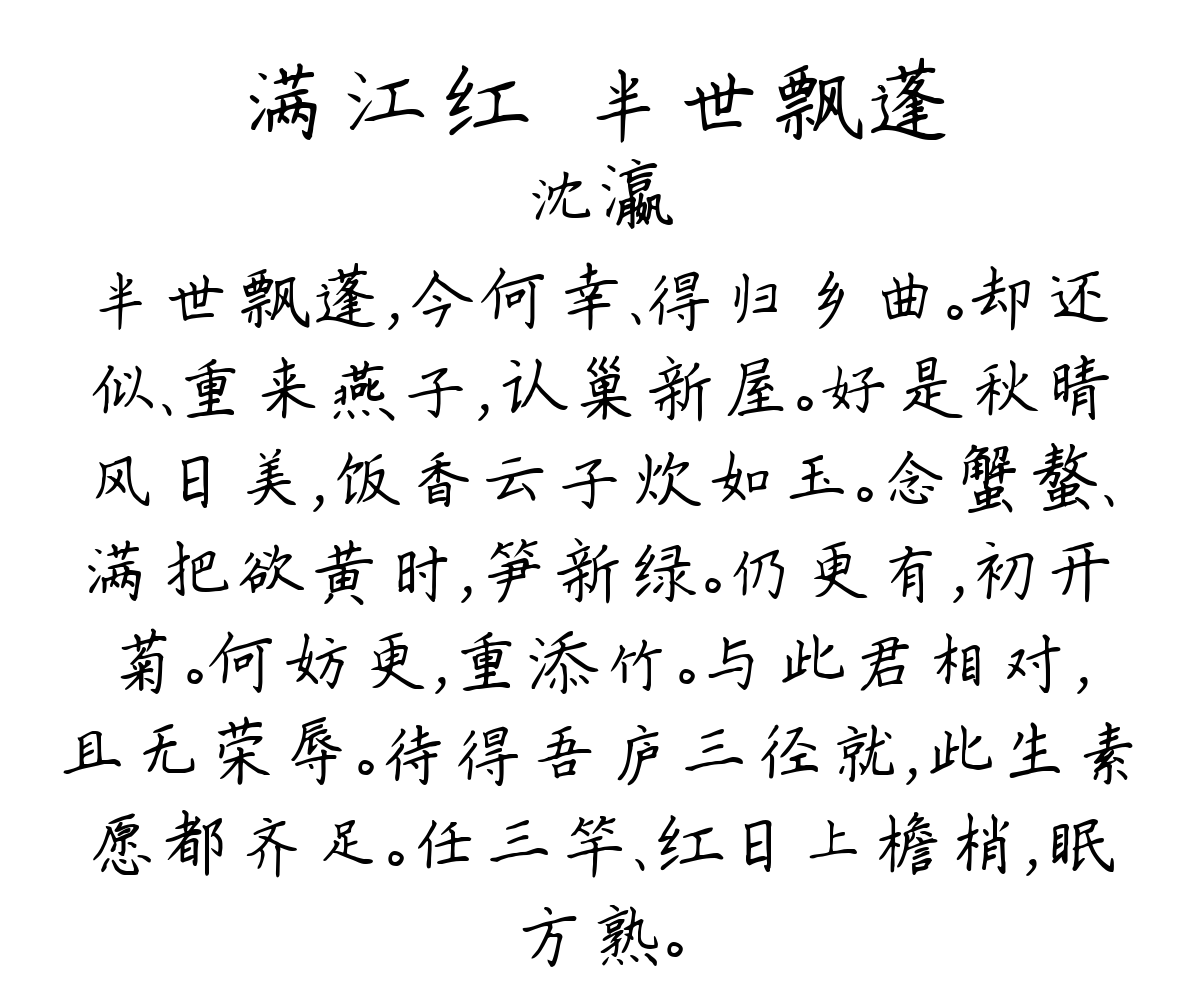 满江红 半世飘蓬
沈瀛
半世飘蓬,今何幸、得归乡曲。却还
似、重来燕子,认巢新屋。好是秋晴
风日美,饭香云子炊如玉。念蟹螯、
满把欲黄时,笋新绿。仍更有,初开
菊。何妨更,重添竹。与此君相对,
且无荣辱。待得吾庐三径就,此生素
愿都齐足。任三竿、红日上檐梢,眠
方熟。